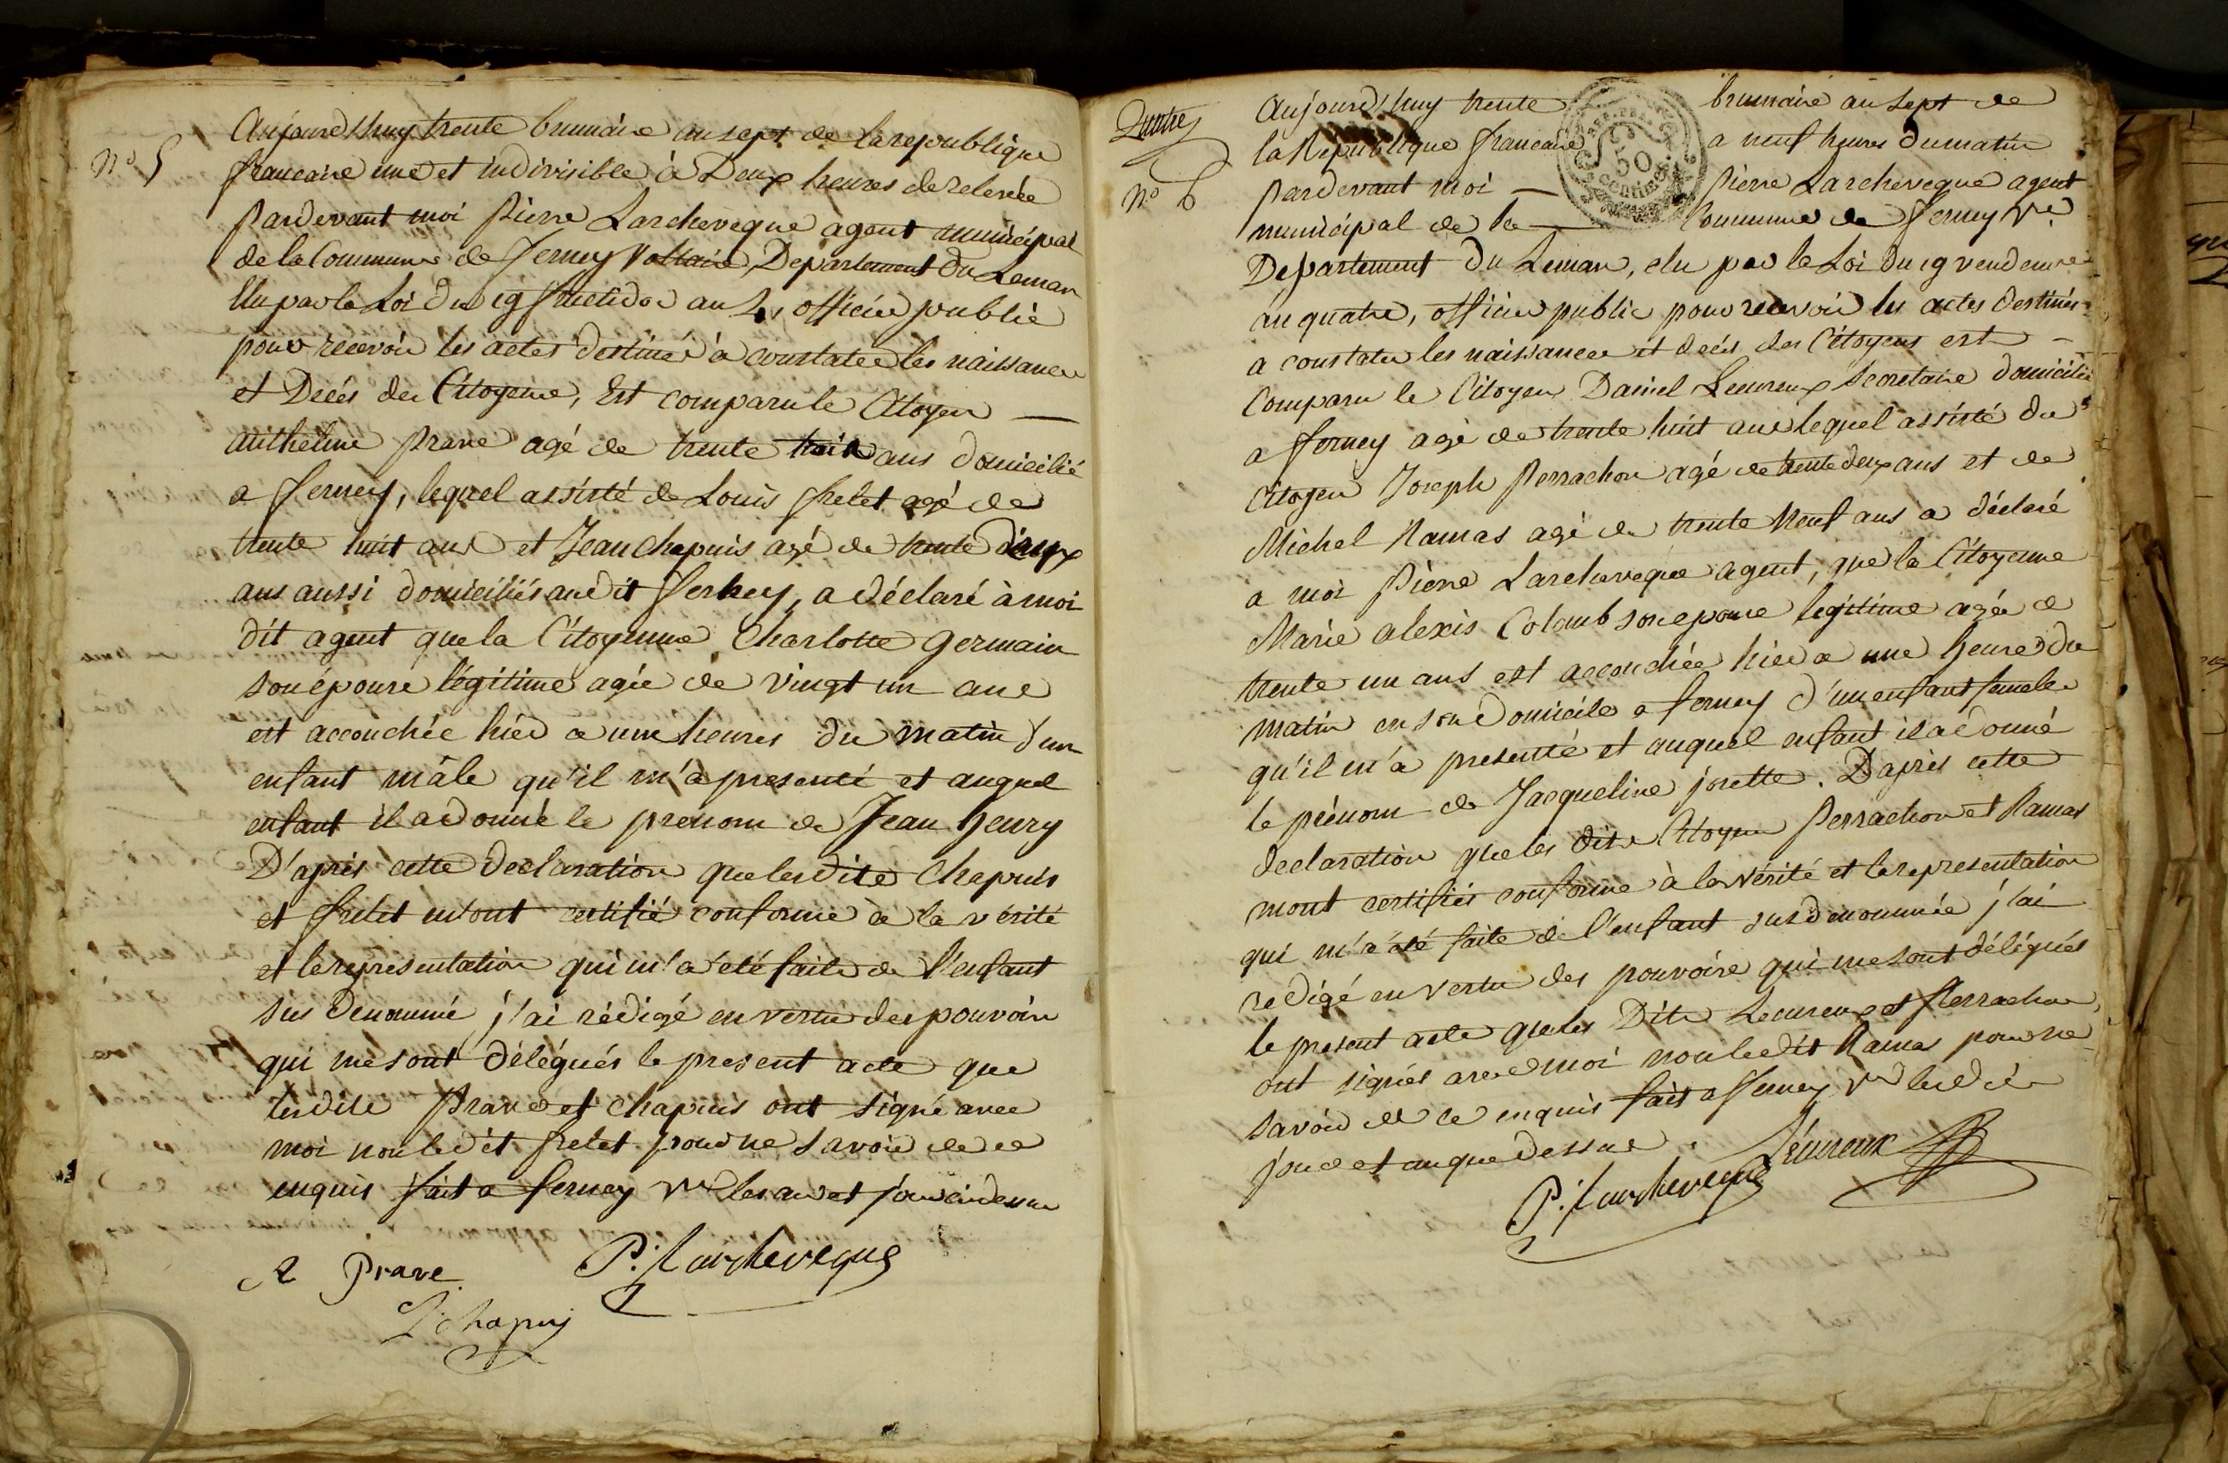 N° 5
Aujourd'huy trente brumaire an sept de la republique
francaise une et indivisible à Deux heures de relevée
Pardevant moi Pierre Larcheveque agent municipal
de la Commune de ferney Voltaire, Departement Du Leman
Elu par la Loi du 19 officier public
pour recevoir les actes destinés à constater les naissances
et Decés des Citoyens, Est comparu le Citoyen
anthelme Prave agé de trente ans domicilié
a ferney, lequel assisté de Louis frelet agé de
trente huit ans et Jean Chapuis agé de trente deux
ans aussi domiciliés audit ferney, a déclaré à moi
dit agent que la Citoyenne Charlotte Germain
son épouse légitime agée de vingt un ans
est accouchée hier a une heures du matin d'un
enfant mâle qu'il m'a presenté et auquel
enfant il a donné le prenom de Jean henry
D'après cette declaration que lesdits Chapuis
et frelet m'ont certifié conforme à la vérité
et la representation qui m'a été faite de l'enfant
sus denommé j'ai rédigé en vertu des pouvoirs
qui me sont délégués le present acte que
lesdits Prave et Chapuis ont signé avec
moi non ledit frelet pour ne savoir de ce
enquis fait a ferney les an et jour
A Prave P: Larcheveque
Chapuis
N° 6
Aujourd'huy trente brumaire an sept de
la Republique francaise a neuf heures du matin
Pardevant moi Pierre Larcheveque agent
municipal de la Commune de ferney Vre
Departement Du Leman, elu par la Loi du 19 vendemre
an quatre, officier public pour recevoir les actes destinés
a constater les naissances et decés des Citoyens est
Comparu le Citoyen Daniel Lecureux Secretaire domicilié
a ferney agé de trente huit ans lequel assisté du
Citoyen Joseph Perrachon agé de trente deux ans et de
Michel Ramas agé de trente Neuf ans a déclaré
a moi Pierre Larcheveque agent, que la Citoyenne
Marie alexis Colomb son epouse legitime agée de
trente un ans est accouchée hier a une heure du
matin en son Domicile a ferney d'un enfant femele
qu'il m'a presenté et auquel enfant il a donné
le prénom de Jacqueline josette. D'après cette
declaration que les dits Citoyens Perrachon et Ramas
mont certifiés conforme à la vérité et la representation
qui m'a été faite de l'enfant sus denommée j'ai
redigé en vertu des pouvoirs qui me sont délégués
le present acte que les Dits Lecureux et Perrachon
ont signés avec moi non ledit Ramas pour ne
savoir de ce enquis fait a ferney Vre les dits
jour et an que dessus.
Lécureux
P: Larcheveque
50
centimes